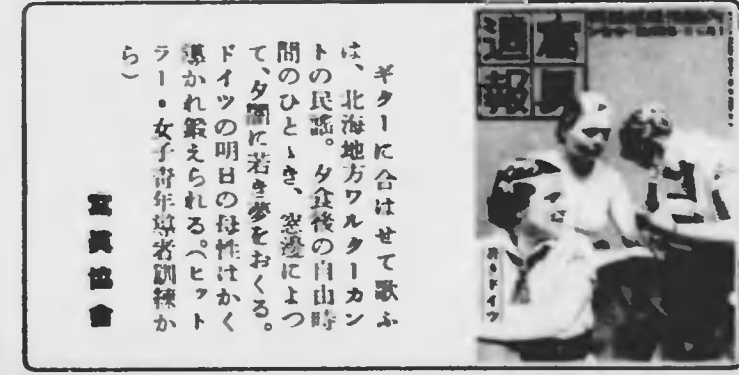 ギターに合はせて歌ふ
は、北海地方ワルターカン
トの民謡。夕食後の自由時
間のひとゝき、窓邊によつ
て、夕闇に若き夢をおくる。
ドイツの明日の母性はかく
導かれ鍛えられる。(ヒット
ラー・女子青年導者訓練か
ら)
寫眞協會
寫眞
週報